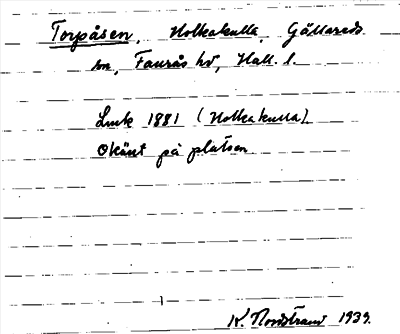 Torpåsen, Holkakulla, Gällareds
sn, Faurås hd, Hall. l.
Lmk 1881 (Holkakulla)
Okänt på platsen
K. Nordstrand 1939.